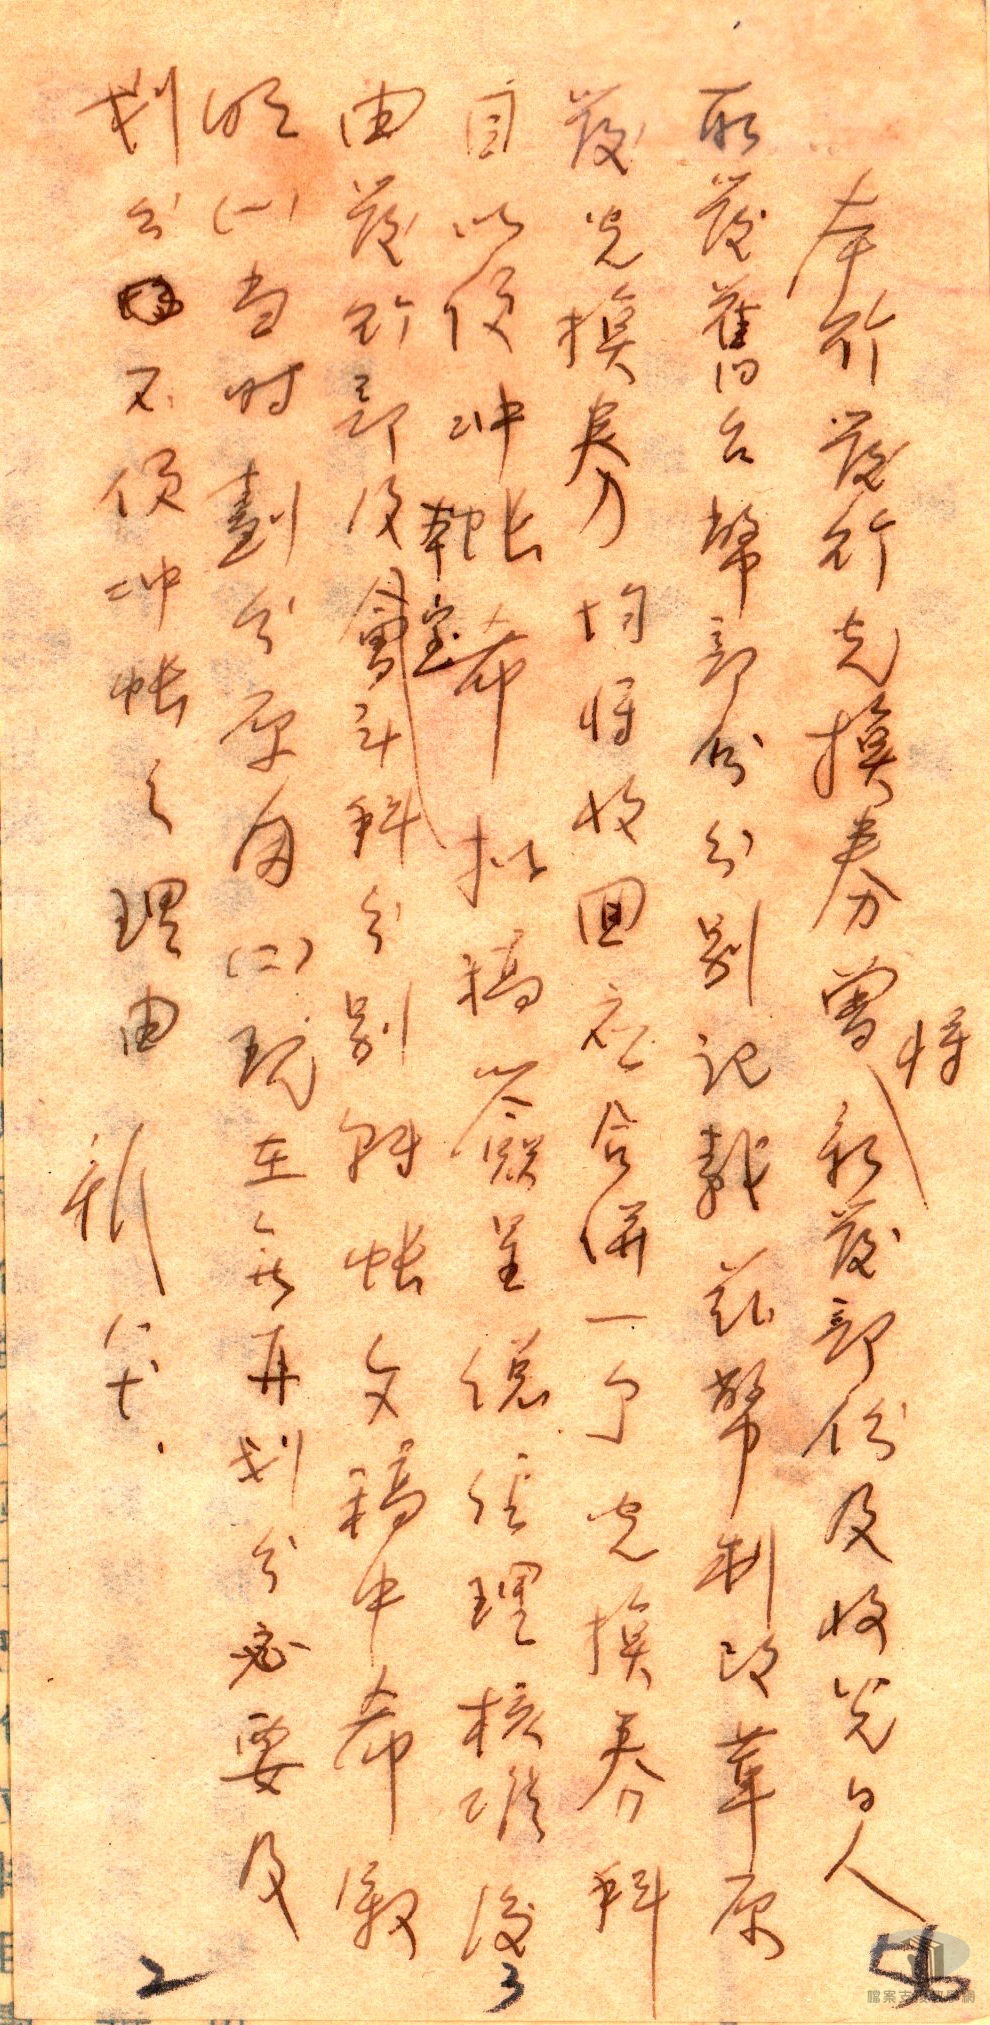 本行發行兌換券曾將新發部份及收兌日人
所發舊台幣部份分別記載茲幣制改革原
發兌換券均將收回應合併一個兌換券科
目以便沖帳希擬稿簽呈總經理核准後
由發行部及本室會計科分別轉帳文稿中希敘
明(一)當時劃分原因(二)現在無再划分必要及
划分不便沖帳之理由
56
3
2
檔案支援教學網